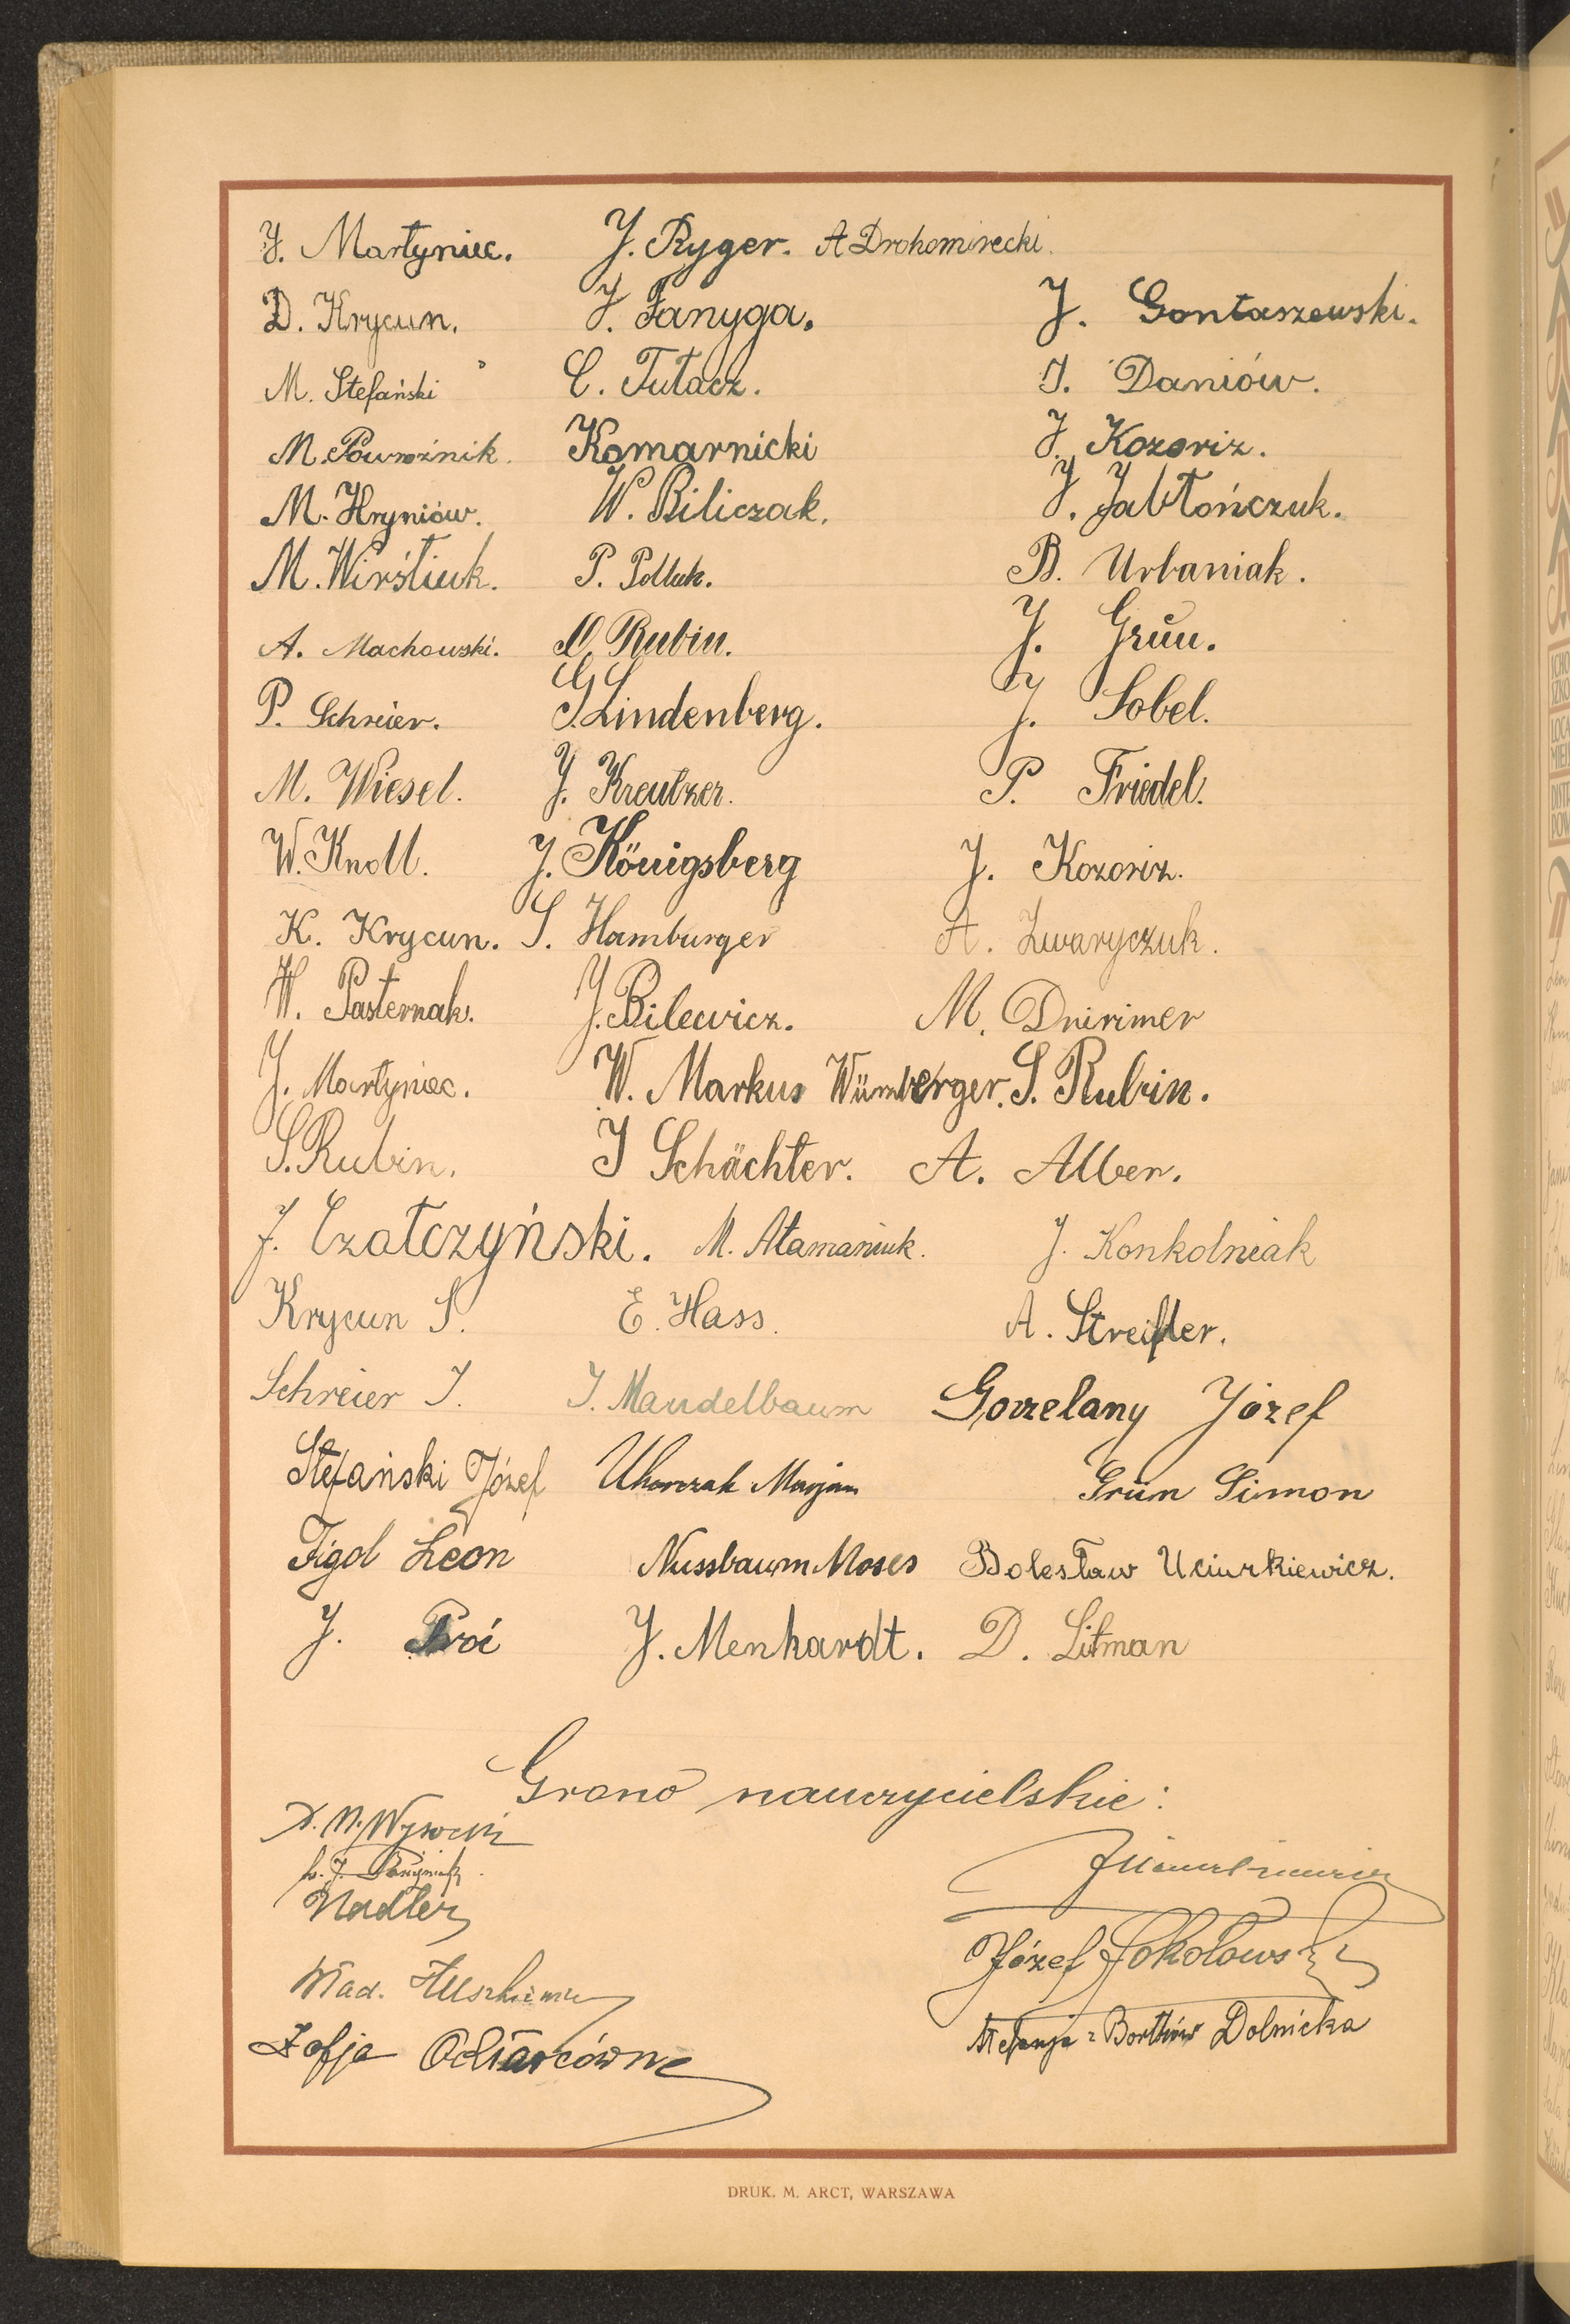 J. Martyniec. J. Ryger. A Drohomirecki.
D. Krycun. J. Fanyga. J. Gontaszewski.
M. Stefański C. Tutacz. J. Daniów.
M. Powroźnik. Komarnicki J. Kozoriz.
M. Hryniów. W. Biliczak. J. Jabłończuk.
M. Wirstiuk. P. B. Urbaniak.
A. Machowski. O. Rubin. J. Grün.
P. Schreier. G. Lindenberg. J. Sobel.
M. Wiesel. J. Kreutzer. P. Friedel.
W. Knoll. J. Königsberg J. Kozoriz.
K. Krycun. S. Hamburger A. Zwaryczuk.
W. Pasternak. J. Bilewicz. M. Dririmer
J. Martyniec. W. Markus Würmberger. S. Rubin.
S. Rubin. J Schächter. A. Alber.
J. Czatczyński. M. Atamaniuk. J. Konkolniak
Krycun S. E. Hass. A. Streifler.
Schreier J. J. Mandelbaum Gorzelany Józef
Stefański Józef Uhorczak Marjan Grün Simon
Figol Leon Nussbaum Moses Bolesław Uciurkiewicz.
J. Proć J. Menhardt. D. Litman
Grono nauczycielskie:
X. M. Wysocki
Nadler
Józef Sokołowski
Wład.
Stefanja z Dolnicka
Zofja Ochtarcówna
DRUK. M. ARCT, WARSZAWA